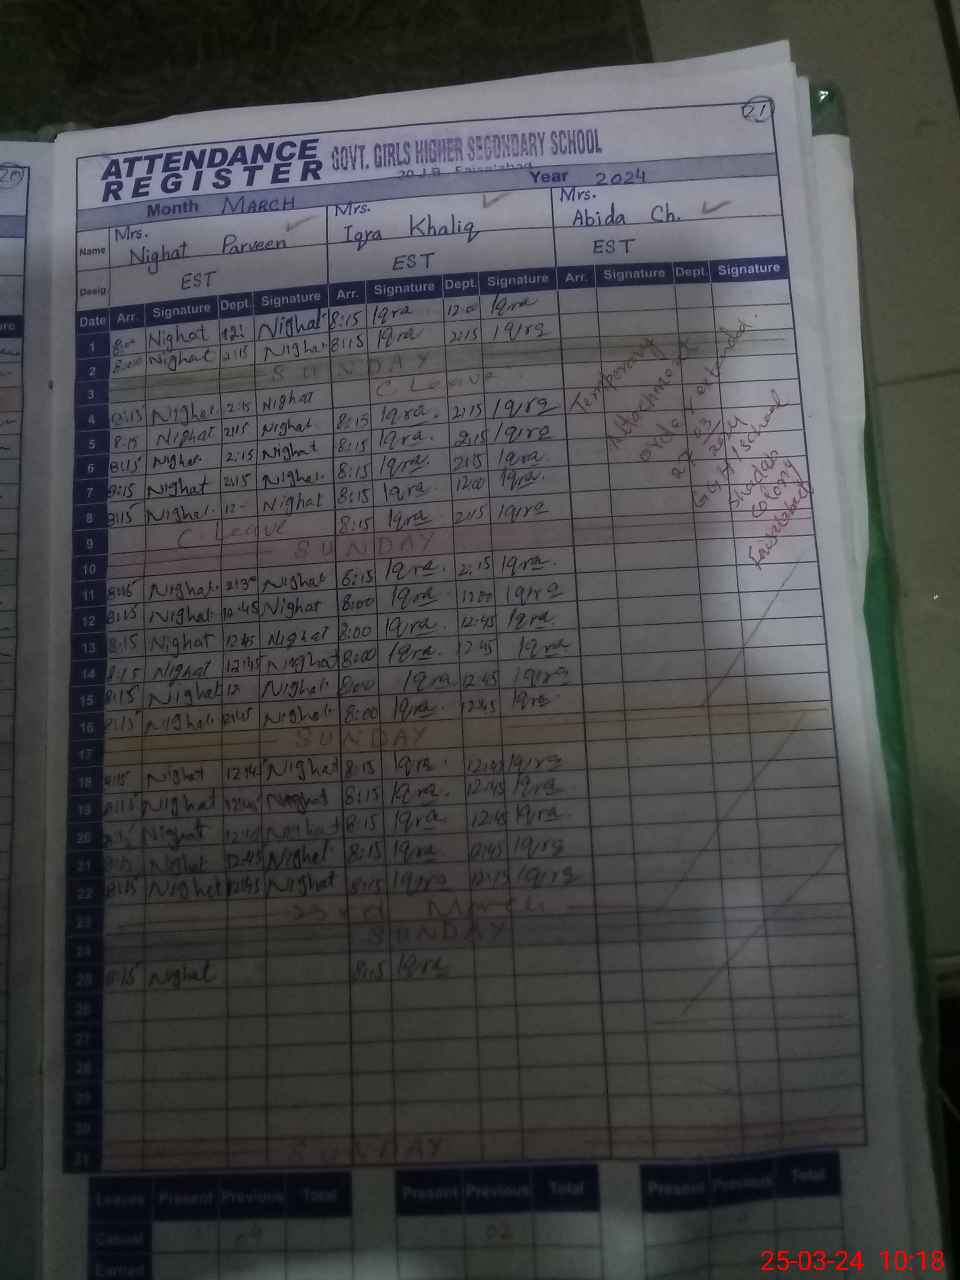 21
ATTENDANCE REGISTER
GOVT. GIRLS HIGHER SECONDARY SCHOOL
Month MARCH Year 2024
Name Mrs. Nighat Parveen Mrs. Iqra Khaliq Mrs. Abida Ch.
Desig. EST EST EST
Date Arr. Signature Dept. Signature Arr. Signature Dept. Signature Arr. Signature Dept. Signature
1 8:00 Nighat 12: Nighat 8:15 Iqra 12:00 Iqra
2 8:00 Nighat 2:15 Nighat 8:15 Iqra 2:15 Iqra
3 SUNDAY
4 8:15 Nighat 2:15 Nighat C. Leave
5 8:15 Nighat 2:15 Nighat 8:15 Iqra 2:15 Iqra
6 8:15 Nighat 2:15 Nighat 8:15 Iqra 2:15 Iqra
7 8:15 Nighat 2:15 Nighat 8:15 Iqra 2:15 Iqra
8 8:15 Nighat 12 Nighat 8:15 Iqra 12:00 Iqra
9 C. Leave 8:15 Iqra 2:15 Iqra
10 SUNDAY
11 8:15 Nighat 2:30 Nighat 8:15 Iqra 2:15 Iqra
12 8:15 Nighat 12:45 Nighat 8:00 Iqra 12:00 Iqra
13 8:15 Nighat 12:45 Nighat 8:00 Iqra 12:45 Iqra
14 8:15 Nighat 12:45 Nighat 8:00 Iqra 12:45 Iqra
15 8:15 Nighat 12 Nighat 8:00 Iqra 12:45 Iqra
16 8:15 Nighat 12:45 Nighat 8:00 Iqra 12:45 Iqra
17 SUNDAY
18 8:15 Nighat 12:45 Nighat 8:15 Iqra 12:45 Iqra
19 8:15 Nighat 12:45 Nighat 8:15 Iqra 12:45 Iqra
20 Nighat Nighat 8:15 Iqra 12:45 Iqra
21 Nighat 12:45 Nighat 8:15 Iqra 12:45 Iqra
22 8:15 Nighat 12:45 Nighat 8:15 Iqra 12:15 Iqra
23 23rd March
24 SUNDAY
25 8:15 Nighat 8:15 Iqra
26
27
28
29
30
31 SUNDAY
Temporary
Attachment
order extended
school
Shadab
colony
Faisalabad
Leaves Present Previous Total Present Previous Total Present Previous Total
Casual 04 02
Earned
25-03-24 10:18